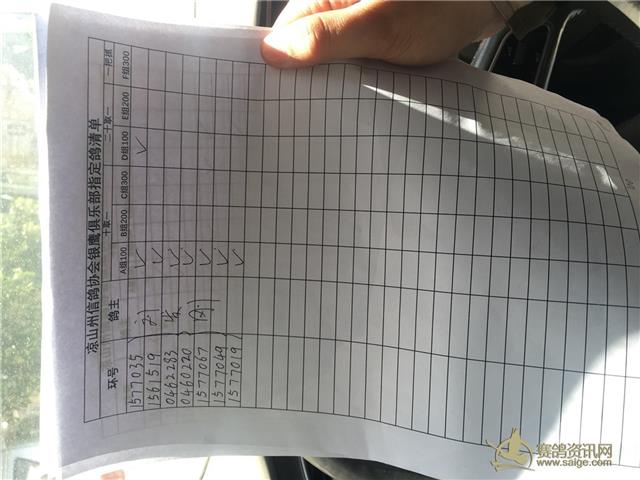 凉山州信鸽协会银鹰俱乐部指定鸽清单
环号 鸽主 十取一 二十取一 一把抓
A组100 B组200 C组300 D组100 E组200 F组300
1577035 ✓ ✓
1561519 ✓
0462283 ✓
0460220 ✓
1577067 ✓
1577049 ✓
1577019 ✓
赛鸽资讯网
www.saige.com